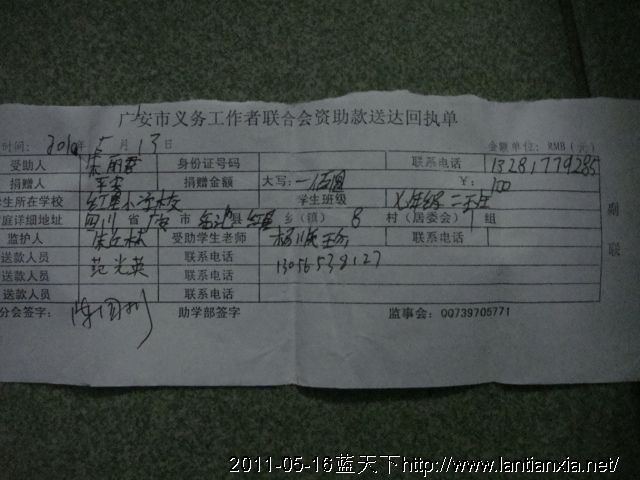 广安市义务工作者联合会资助款送达回执单
时间: 2010年 5月13日 金额单位: RMB (元)
受助人 身份证号码 联系电话 13281779285
捐赠人 平安 捐赠金额 大写: 一佰圆 ¥: 100
学生所在学校 学生班级
家庭详细地址 四川省 广安市 岳池县 乡(镇) 8 村(居委会) 组
监护人 受助学生老师 联系电话
送款人员 范光英 联系电话 13056538127
送款人员 联系电话
送款人员 联系电话
分会签字: 助学部签字 监事会: QQ739705771
副联
2011-05-16蓝天下http://www.lantianxia.net/